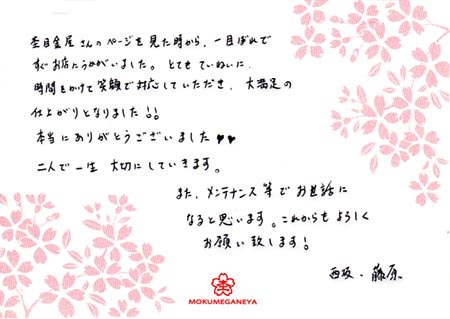 杢目金屋さんのページを見た時から、一目ぼれで
すぐお店にうかがいました。とてもていねいに、
時間をかけて笑顔で対応していただき、大満足の
仕上がりとなりました!!
本当にありがとうございました♥♥
二人で一生 大切にしていきます。
また、メンテナンス等でお世話に
なると思います。これからもよろしく
お願い致します!
西坂・藤原
MOKUMEGANEYA